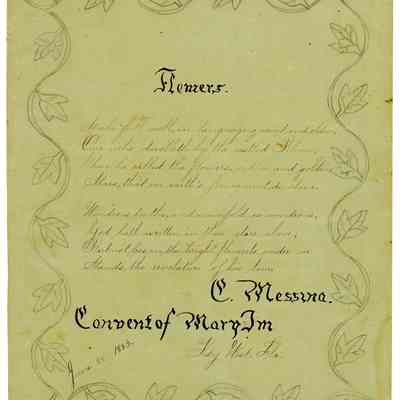 Flowers.
Spake full well, in language quaint and olden,
One who dwelleth by the castled Rhine,
When he called the flowers, so blue and golden,
Stars, that in earth's firmament do shine.
Wondrous truths, and manifold as wondrous,
God hath written in those stars above;
But not less in the bright flowerets under us
Stands the revelation of his love.
C. Messina.
Convent of Mary Im
Key West, Fla.
June